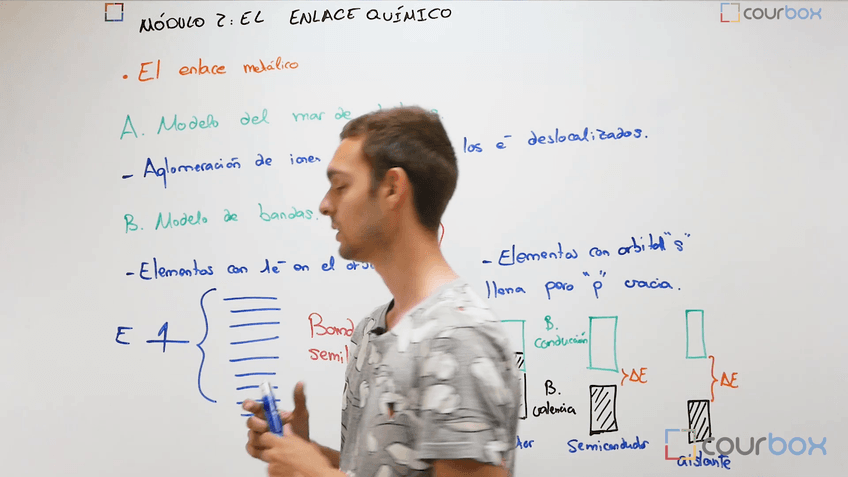 MÓDULO 2: EL ENLACE QUÍMICO
courbox
• El enlace metálico
A. Modelo del mar de
- Aglomeración de iones los e⁻ deslocalizados.
B. Modelo de bandas.
- Elementos con 1e⁻ en el
- Elementos con orbital "s"
llena pero "p" vacía.
E
B.
conducción
B.
valencia
ΔE
ΔE
Semiconductor
aislante
courbox